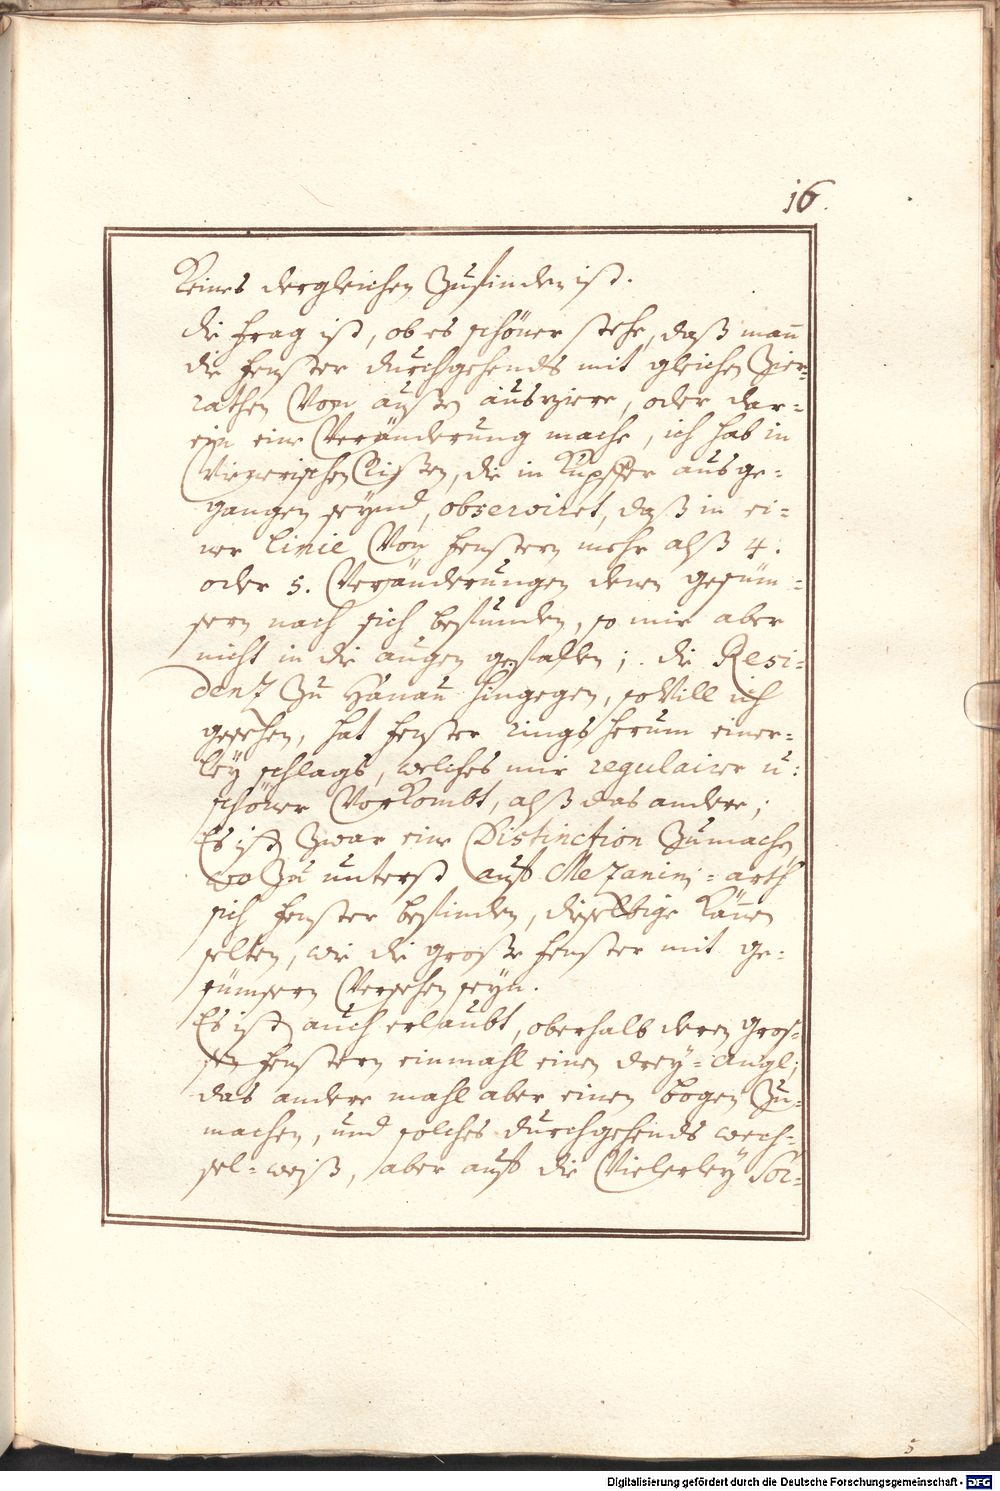 16.
Keines dergleichen Zufinden ist.
die frag ist, ob es schöner stehe, daß mann
die fenster durchgehends mit gleichen Zier=
rathen Von außen ausziere, oder dar=
ein eine Veränderung mache, ich hab in
die in Kupffer ausge=
gangen seynd, observiret, daß in ei=
ner Linie Von fenstern mehr alß 4.
oder 5. Veränderungen deren gesüm=
sern nach sich befunden, so mir aber
nicht in die augen gefallen; die Resi=
denz Zu Hanau hingegen, so Vill ich
gesehen, hat fenster rings herum einer=
leÿ schlags, welches mir regulairer u:
schöner Vorkombt, alß das andere;
Es ist Zwar eine Distinction Zumachen
wo Zu unterst auf Mezanini=arth
sich fenster befinden, dieselbige könen
selten, wie die große fenster mit ge=
sümsern Versehen seyn.
Es ist auch erlaubt, oberhalb deren gros=
sen fenstern einmahl einen dreÿ=angl;
das andere mahl aber einen bogen Zu=
machen, und solches durchgehends wech=
sel=weiß, aber auf die Vielerleÿ Sor=
5
Digitalisierung gefördert durch die Deutsche Forschungsgemeinschaft - DFG